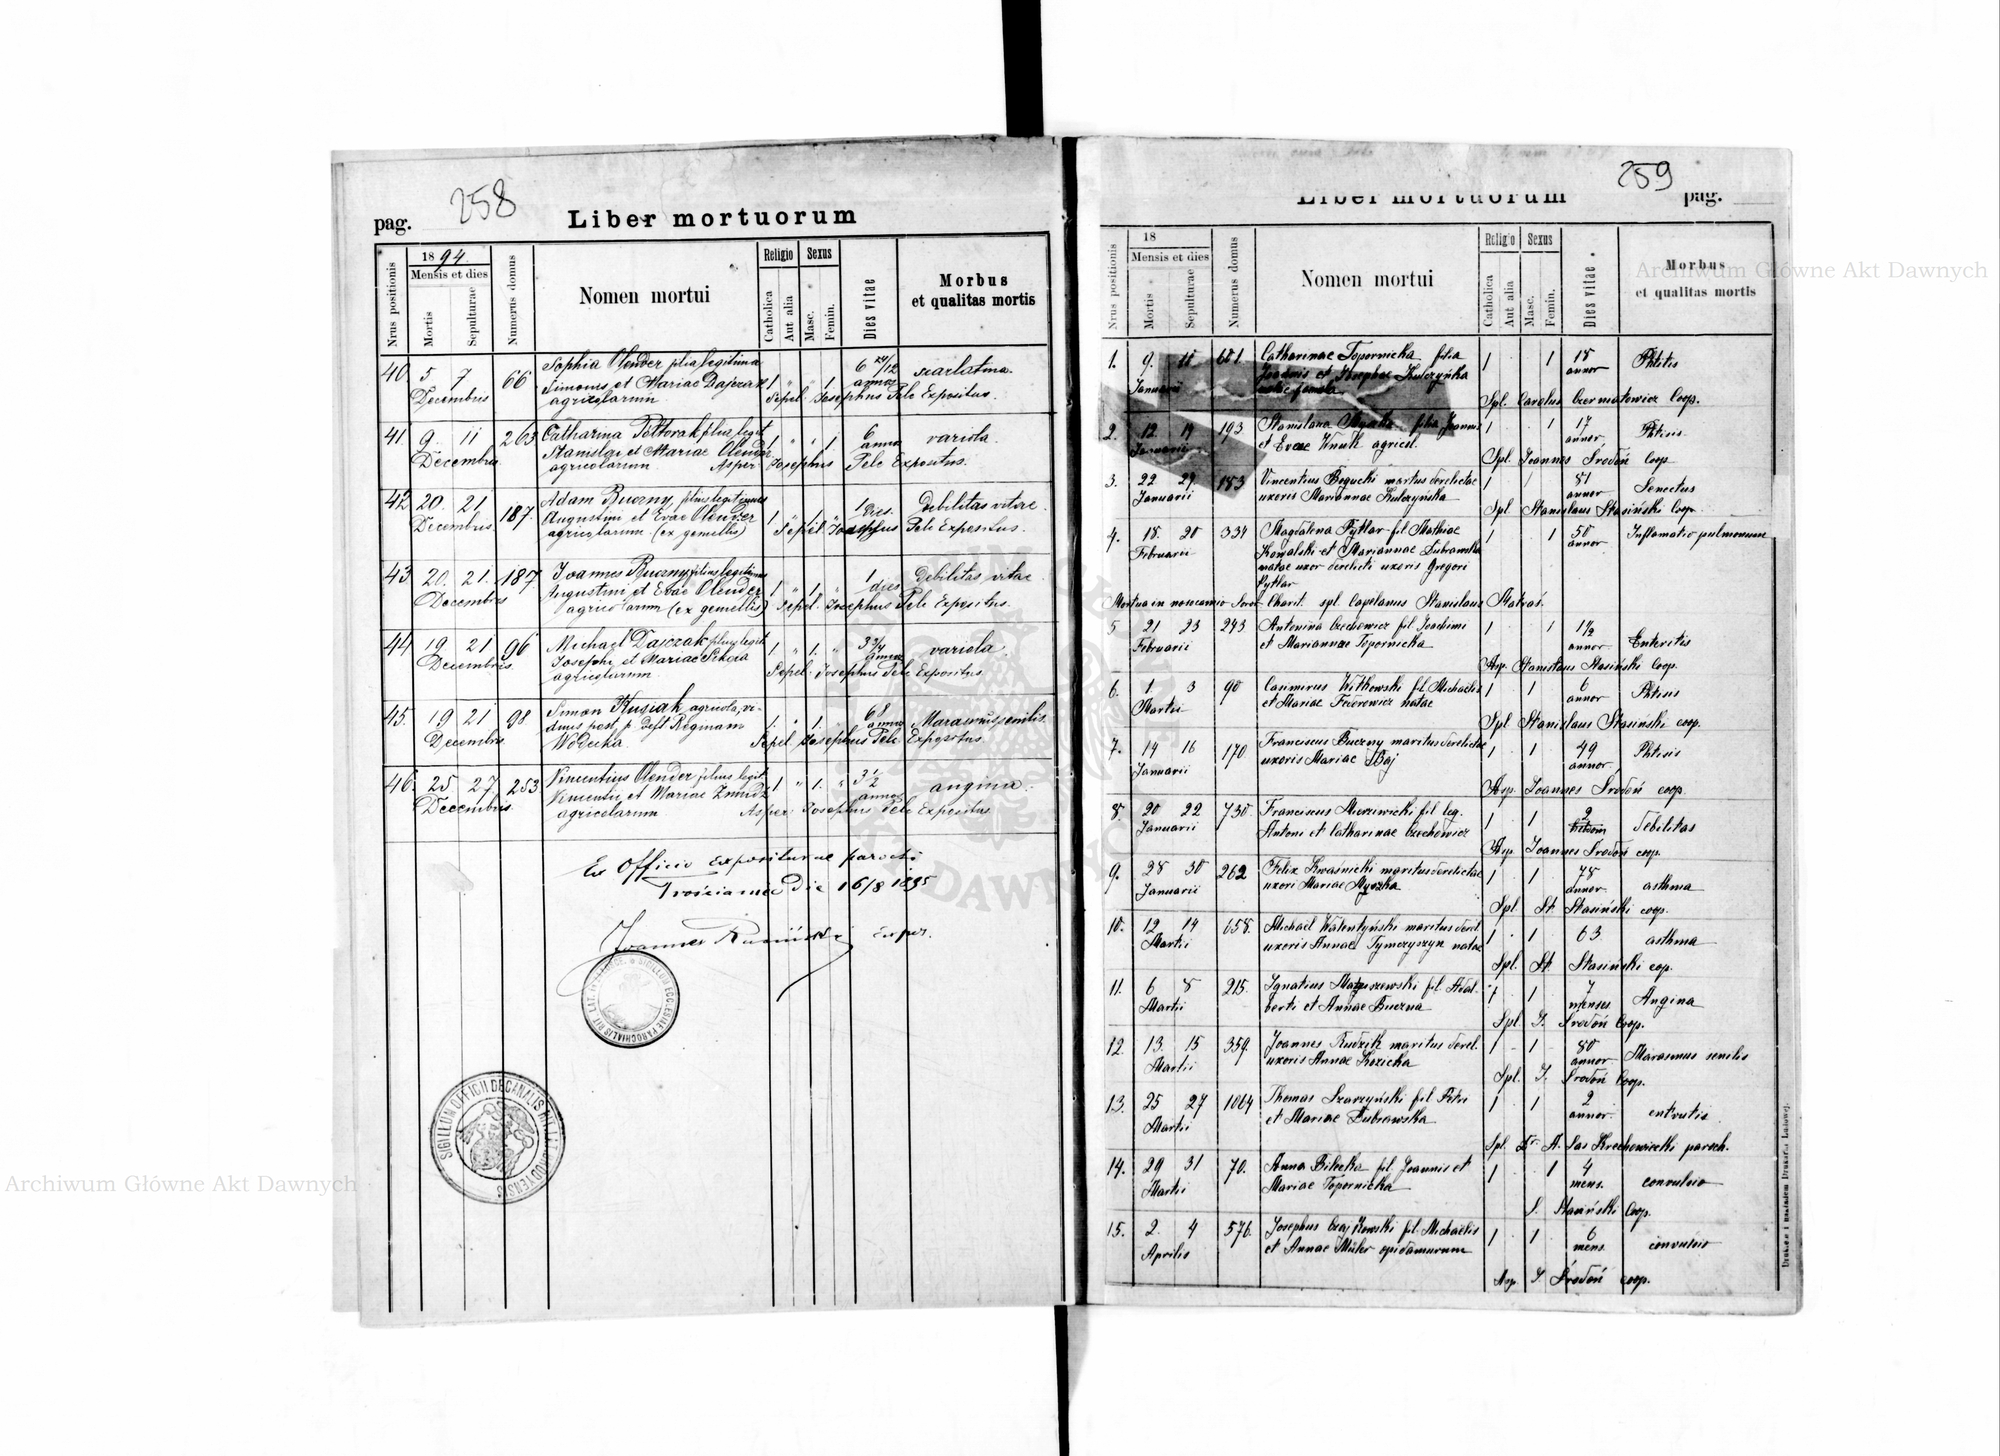 258
pag.
Liber mortuorum
Nrus positionis
1894.
Mensis et dies
Mortis
Sepulturae
Numerus domus
Nomen mortui
Religio
Catholica
Aut alia
Sexus
Masc.
Femin.
Dies vitae
Morbus
et qualitas mortis
40 5 7 66 Sophia Olender filia legitima 6 annor scarlatina.
Decembris Simonis et Mariae Dajczak 1 " " 1
agricolarum Sepel. Josephus Pelc Expositus.
41 9. 11 263 Catharina filia legit 1 " " 1 6 annor variola.
Decembris Stanislai et Mariae Olender
agricolarum Asper. Josephus Pelc Expositus.
42 20. 21 187. Adam Buczny filius legitimus 1 " 1 " 1 dies. Debilitas vitae.
Decembris. Augustini et Evae Olender
agricolarum (ex gemellis) Sepel. Josephus Pelc Expositus.
43 20. 21. 187 Joannes Buczny filius legitimus 1 " 1 " 1 dies Debilitas vitae
Decembris Augustini et Evae Olender
agricolarum (ex gemellis) Sepel. Josephus Pelc Expositus.
44 19 21 96 Michael Dajczak filius legit 1 " 1. " 3 3/4 annor variola.
Decembris. Josephi et Mariae
agricolarum Sepel. Josephus Pelc Expositus.
45 19 21 98 Simon Kusiak agricola, vi- 1. " 1. " 68 annor Marasmus senilis.
Decembris duus post p. deft Reginam
Sepel. Josephus Pelc Expositus.
46. 25 27. 253 Vincentius Olender filius legit. 1 " 1. " 3 1/2 annor angina.
Decembris Vincentii et Mariae Zmudz
agricolarum Asper. Josephus Pelc Expositus
Ex Officio expositurae parochi
Trościaniec die 16/8 1895
Joannes expos.
SIGILLUM OFFICII DECANALIS RIT. LAT. BRODTENSIS
259
Liber mortuorum
pag.
Nrus positionis
18
Mensis et dies
Mortis
Sepulturae
Numerus domus
Nomen mortui
Religio
Catholica
Aut alia
Sexus
Masc.
Femin.
Dies vitae
Morbus
et qualitas mortis
1. 9. 11 681 Catharinae Topornicka filia 1 1 18 annor Phtisis
Januarii Joannis et Josephae Kulczyńska
natae famula
Spl. Carolus Czermatowicz Coop.
2. 12. 14 193 Stanislava filia Joannis 1 1 17 annor Phtisis
Januarii et Evae Knull agricol.
Spl. Joannes Środoń Coop
3. 22 24 183 Vincentius Boguchi maritus derelictae 1 1 81 annor Senectus
Januarii uxoris Mariannae Kulczyńska
Spl Stanislaus Stasiński Coop
4. 18. 20 334 Magdalena Pytlar fil Mathiae 1 1 50 annor Inflamatio pulmonum
Februarii Kowalski et Mariannae Dubrawska
natae uxor derelicti uxoris Gregori
Pytlar
Mortua in nosocomio Soror Charit. spl. Capelanus Stanislaus Matras.
5 21 23 243 Antonina Czechowicz fil Joachimi 1 1 1 1/2 annor Enteritis
Februarii et Mariannae Topornicka
Asp. Stanislaus Stasiński Coop.
6. 1 3 90 Casimirus Witkowski fil Michaelis 1 1 6 annor Phtisis
Martii et Mariae Fedorowicz natae
Spl Stanislaus Stasiński coop.
7. 14 16 170. Franciscus Buczny maritus derelictae 1 1 49 annor Phtisis
Januarii uxoris Mariae Baj
Asp. Joannes Środoń coop.
8. 20 22 730. Franciscus fil leg. 1 1 2 Debilitas
Januarii Antoni et Catharinae Czechowicz
Asp Joannes Środoń coop.
9. 28 30 262 Felix Kwaśnicki maritus derelictae 1 1 78 annor asthma
Januarii uxori Mariae Myszka
Spl. St. Stasiński coop.
10. 12 14 658. Michael Walentyński maritus derel. 1 1 63 asthma
Martii uxoris Annae Tymczyszyn natae
Spl. St. Stasiński cop.
11. 6 8 215. Ignatius Matuszewski fil Adal- 1 1 7 menses Angina
Martii berti et Annae Buczna
Spl J. Środoń Coop.
12. 13. 15 359. Joannes Rudzik maritus derel. 1 1 80 annor Marasmus senilis
Martii uxoris Annae Kozicka
Spl. J. Środoń Coop.
13. 25 27 1004 Thomas Szarzyński fil Petri 1 1 2 annor. entritis
Martii et Mariae Dubrawska
Spl. Dr. A. Sas Krechowiecki paroch.
14. 29 31 70. Anna Bilecka fil Joannis et 1 1 4 mens. convulsio
Martii Mariae Topornicka
S. Stasiński Coop.
15. 2. 4 576. Josephus Czajkowski fil Michaelis 1 1 6 mens. convulsio
Aprilis et Annae Müler opidanorum
Asp. J. Środoń coop.
Archiwum Główne Akt Dawnych
Archiwum Główne Akt Dawnych